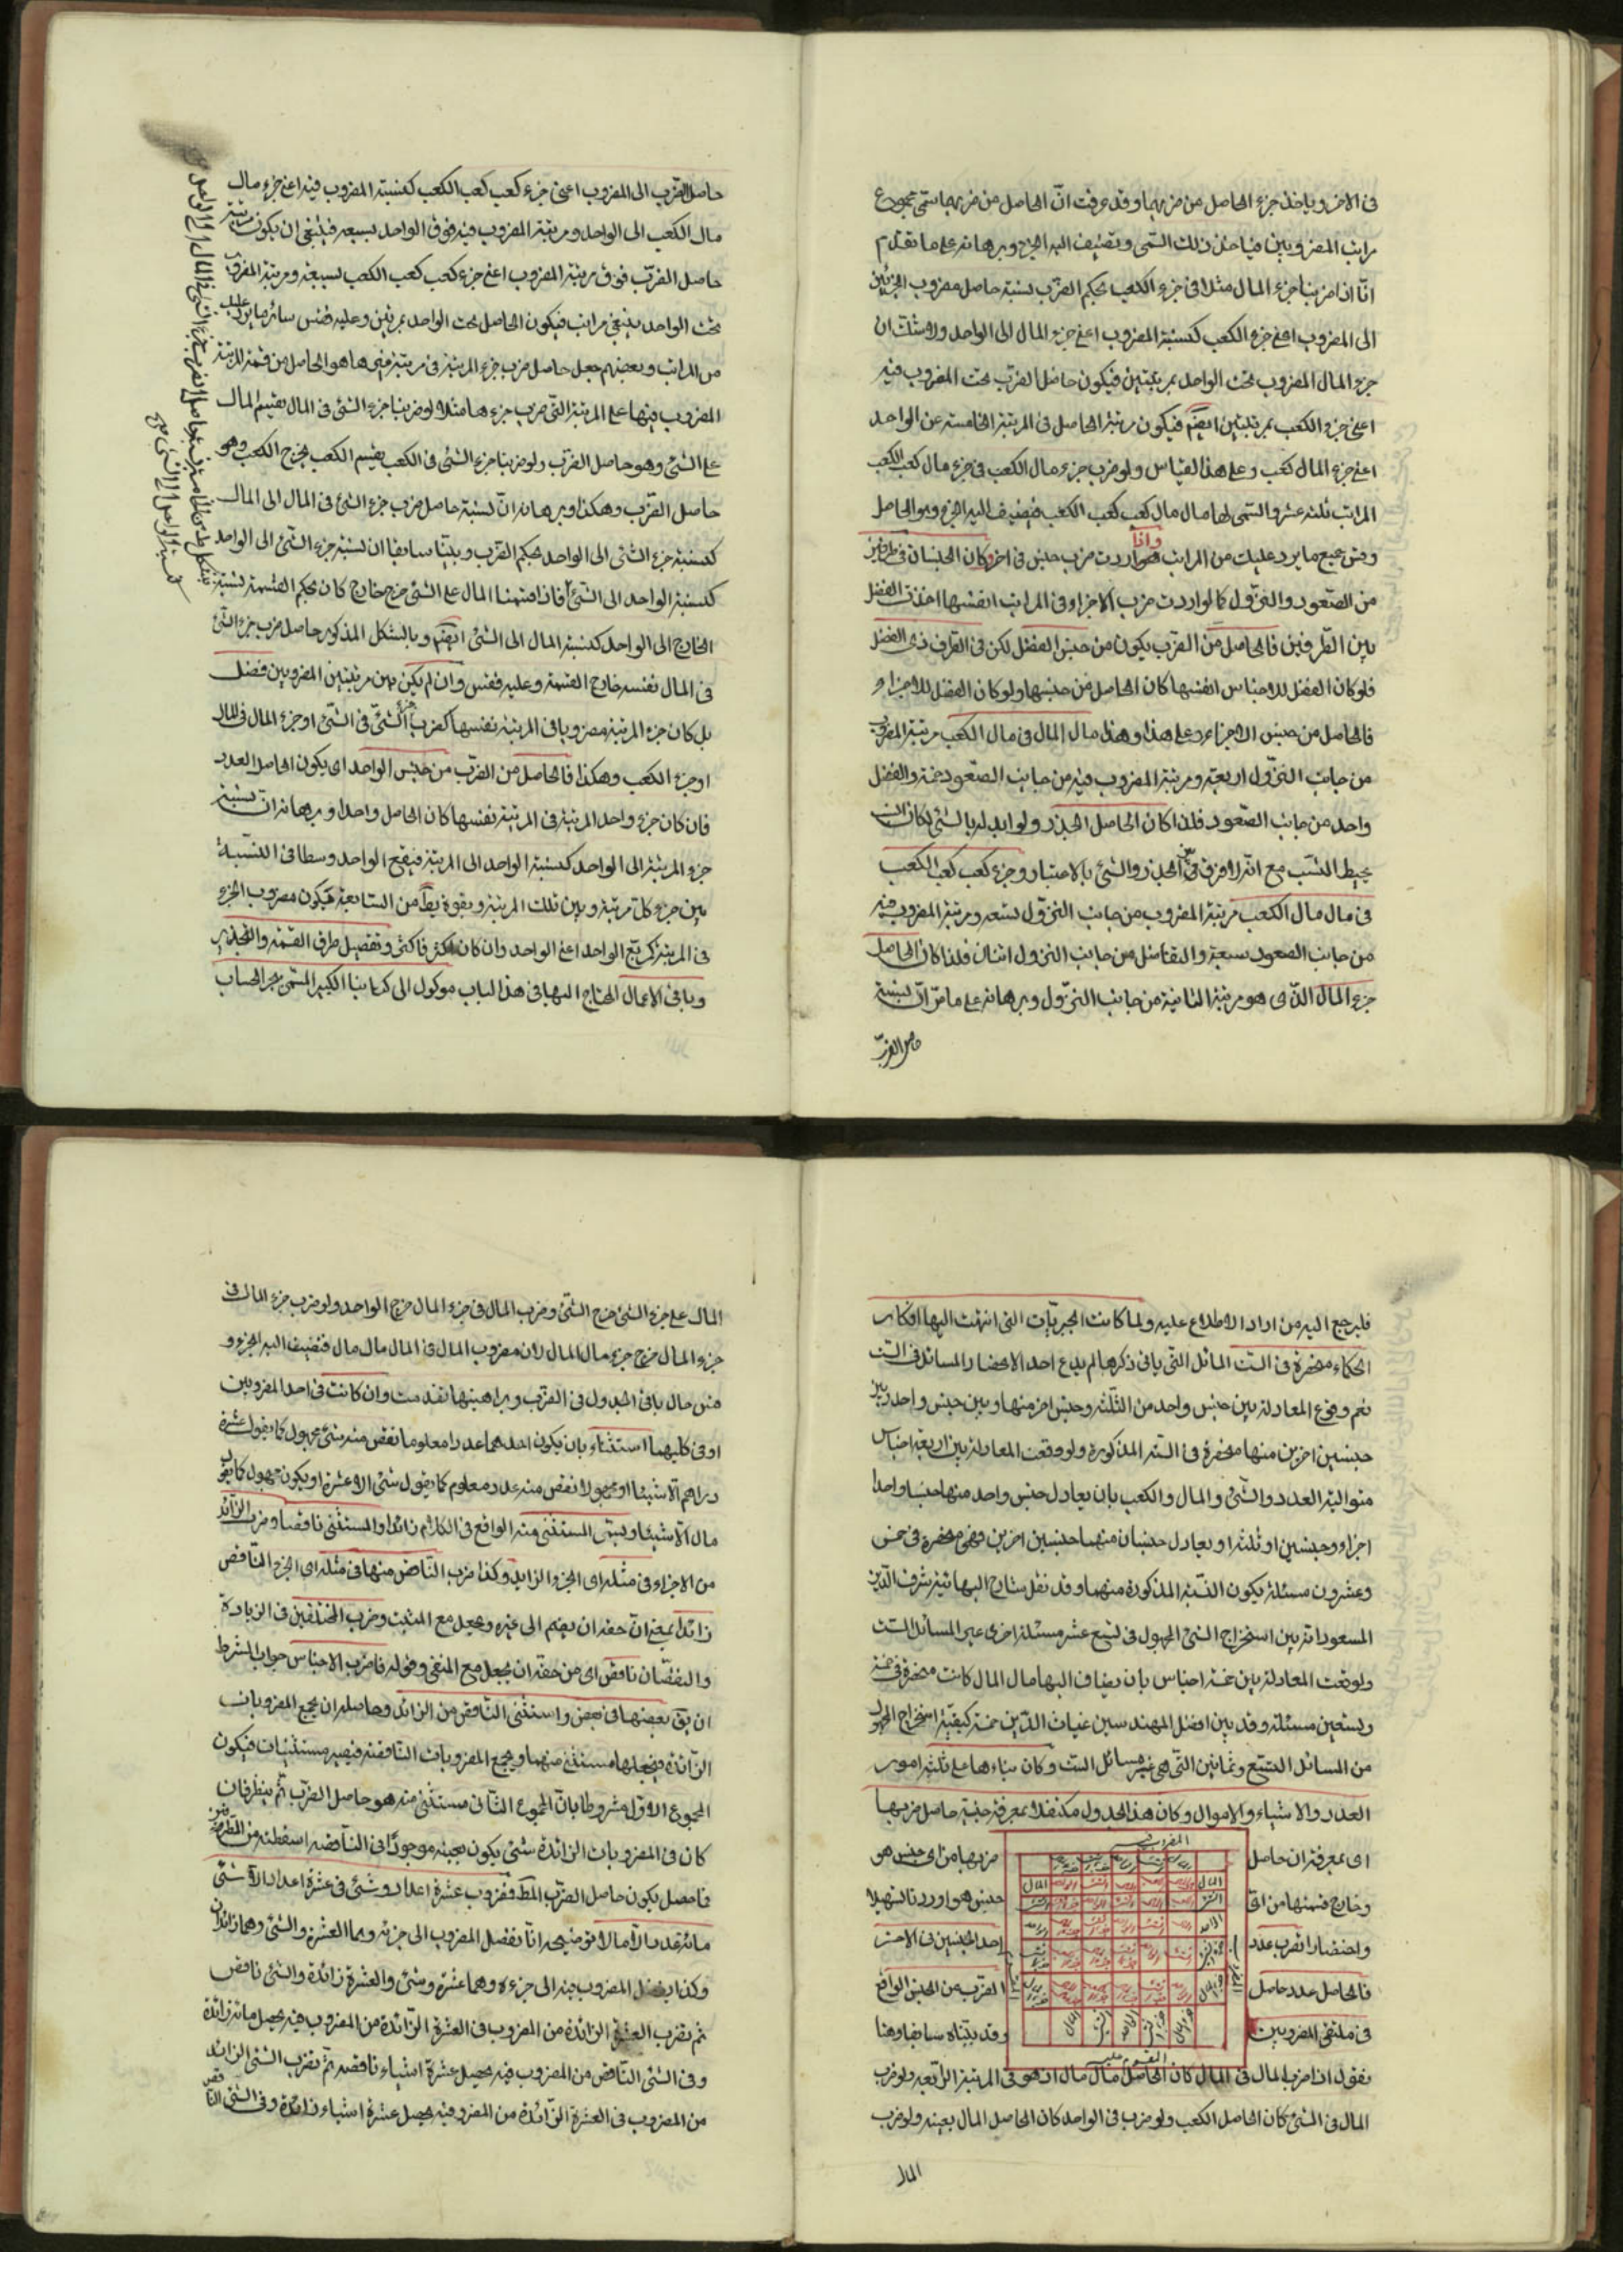 فى الاخر ويؤخذ جزء الحاصل من ضربهما وقد عرفت انّ الحاصل من ضربهما سمّى مجموع
مراتب المضروبين فياخذ ذلك السّمى ويضيف اليه الجزء وبرهانه على ما تقدّم
انّا اذا ضربنا جزء المال مثلا فى جزء الكعب بحكم الضّرب نسبة حاصل مضروب الجزئين
الى المضروب اعنى جزء الكعب كنسبة المضروب اعنى جزء المال الى الواحد ولا شك ان
جزء المال المضروب تحت الواحد بمرتبتين فيكون حاصل الضّرب تحت المضروب فيه
اعنى جزء الكعب بمرتبتين ايضم فيكون مرتبة الحاصل فى المرتبة الخامسة عن الواحد
اعنى جزء المال كعب وعلى هذا القياس ولو ضرب جزء مال الكعب فى جزء مال كعب الكعب
المراتب ثلثة عشر والسّمى لها مال مال كعب كعب الكعب فيضيف اليه الجزء وهو الحاصل
وقس جميع ما يرد عليك من المراتب واذا اردت ضرب جنس فى اخر وكان الجنسان فى طرفين
من الصّعود والنزول كما لو اردت ضرب الاجزاء فى المراتب انفسها اخذت الفضل
بين الطّرفين فالحاصل من الضّرب يكون من جنس الفضل لكن فى الطّرف ذى الفضل
فلو كان الفضل للاجناس انفسها كان الحاصل من جنسها ولو كان الفضل للاجزاء
فالحاصل من جنس الاجزاء وعلى هذا وهذا مال المال فى مال الكعب مرتبة المضروب
من جانب النزّول اربعة ومرتبة المضروب فيه من جانب الصّعود خمسة والفضل
واحد من جانب الصّعود فلذا كان الحاصل الجذر ولو ابدله بالشئ لكان انسب
بمحيط النسب مع انّه لا فرق بين الجذر والشئ بالاعتبار وجزء كعب كعب الكعب
فى مال مال الكعب مرتبة المضروب من جانب النزول تسعه ومرتبة المضروب فيه
من جانب الصعود سبعة والتفاضل من جانب النزول اثنان فلذا كان الحاصل
جزء المال الذى هو مرتبة الثانية من جانب النزّول وبرهانه على ما مرّ انّ نسبة
حاصل الضرب
حاصل الضّرب الى المضروب اعنى جزء كعب كعب الكعب كنسبة المضروب فيه اعنى جزء مال
مال الكعب الى الواحد ومرتبة المضروب فيه فوق الواحد بسبعه فينبغى ان يكون مرتبة
حاصل الضرب فوق مرتبة المضروب اعنى جزء كعب كعب الكعب بسبعة ومرتبة المضروب
تحت الواحد بتسع مراتب فيكون الحاصل تحت الواحد بمرتبتين وعليه فقس سائر ما يرد عليك
من المراتب وبعضهم جعل حاصل ضرب جزء المرتبة فى مرتبة غيرها هو الحاصل من قسمة المرتبة
المضروب فيها على المرتبة التّى ضرب جزءها مثلا لو ضربنا جزء الشئ فى المال يقسم المال
على الشئ وهو حاصل الضّرب ولو ضربنا جزء الشئ فى الكعب يقسم الكعب يخرج الكعب وهو
حاصل الضّرب وهكذا وبرهانه انّ نسبة حاصل ضرب جزء الشئ فى المال الى المال
كنسبة جزء الشئ الى الواحد بحكم الضرب وبيّنا سابقا ان نسبة جزء الشئ الى الواحد
كنسبة الواحد الى الشئ فاذا قسمنا المال على الشئ خرج خارج كان بحكم القسمة نسبة
الخارج الى الواحد كنسبة المال الى الشئ ايضم وبالشكل المذكور حاصل ضرب جزء الشئ
فى المال نفسه خارج القسمة وعليه فقس وان لم يكن بين مرتبتين المضروبين فضل
بل كان جزء المرتبة مضروبا فى المرتبة نفسها كضرب جزء الشئ فى الشئ او جزء المال فى المال
او جزء الكعب وهكذا فالحاصل من الضّرب من جنس الواحد اى يكون الحاصل العدد
فان كان جزء واحد المرتبة فى المرتبة نفسها كان الحاصل واحدا وبرهانه انّ نسبة
جزء المرتبة الى الواحد كنسبة الواحد الى المرتبة فيقع الواحد وسطا فى النسبة
بين جزء كلّ مرتبة وبين تلك المرتبة وبقوة يط من السابعة فيكون مضروب الجزء
فى المرتبة كمربّع الواحد اعنى الواحد وان كان اكثر فاكثر وتفصيل طرق القسمة والتجذير
وباقى الاعمال المحتاج اليها فى هذا الباب موكول الى كتابنا الكبير المسمّى ببحر الحساب
فليرجع اليه من اراد الاطلاع عليه ولما كانت الجبريّات التى انتهت اليها افكار
الحكماء منحصرة فى الستّ المسائل التّى ياتى ذكرها لم يدع احد الانحصار المسائل فى الستّ
نعم وقوع المعادلة بين جنس واحد من الثّلثة وجنس اخر منها وبين جنس واحد وبين
جنسين اخرين منها منحصرة فى الستّة المذكورة ولو وقعت المعادلة بين اربعة اجناس
متوالية العدد والشّئ والمال والكعب بان يعادل جنس واحد منها جنسا واحدا
اخر او جنسين او ثلثة او يعادل جنسان منها جنسين اخرين فهى منحصرة فى خمس
وعشرون مسئلة يكون السّتّة المذكورة منها وقد نقل شارح البهائيّة شرف الدّين
المسعود انّه بيّن استخراج الشئ المجهول فى تسع عشر مسئلة اخرى غير المسائل الستّ
ولو وقعت المعادلة بين خمسة اجناس بان يضاف اليها مال المال كانت منحصرة فى خمسة
وتسعين مسئلة وقد بيّن افضل المهندسين غياث الدّين جمشيد كيفيّة استخراج المجهول
من المسائل التّسع وثمانين التّى هى غير مسائل الستّ وكان بناءها على ثلثة امور
العدد والاشياء والاموال وكان هذا الجدول متكفلا بمعرفة جنسية حاصل ضربها
اى بمعرفة ان حاصل ضربها من اى جنس هو
وخارج قسمتها من اىّ جنس هو اوردنا تسهيلا
واختصارا تضرب عدد احد الجنسين فى الاخر
فالحاصل عدد حاصل الضّرب من الجنس الواقع
فى ملتقى المضروبين وقد بيّناه سابقا وهنا
المضروب فيه
المقسوم عليه
نقول اذا ضرب المال فى المال كان الحاصل مال مال اذ هو فى المرتبة الرّابعة ولو ضرب
المال فى الشئ كان الحاصل الكعب ولو ضرب فى الواحد كان الحاصل المال بعينه ولو ضرب
المال
المال على جزء الشئ خرج الشّئ وضرب المال فى جزء المال خرج الواحد ولو ضرب جزء المال فى
جزء المال خرج جزء مال المال لان مضروب المال فى المال مال مال فتضيف اليه الجزء و
قس حال باقى الجدول فى الضّرب وبراهينها تقدمت وان كانت فى احد المضروبين
او فى كليهما استثناء بان يكون احدهما عددا معلوما نقص منه شئ مجهول كما يقول عشرة
دراهم الّا شيئا او مجهولا نقص منه عدد معلوم كما يقول شئ الّا عشرة او يكون مجهول كما يقول
مال الّا شيئا ويسمّى المستثنى منه الواقع فى الكلام زائدا والمستثنى ناقصا وضرب الزّائد
من الاجزاء فى مثله اى الجزء الزايد وكذا ضرب النّاقص منها فى مثله اى الجزء النّاقص
زائد بمعنى انّ حقه ان يضم الى غيره ويجعل مع المثبت وضرب المختلفين فى الزيادة
والنقصان ناقص اى من حقّه ان يجعل مع المنفى وقوله فاضرب الاجناس جواب الشرط
ان بق بعضها فى بعض واستثنى النّاقص من الزائد وحاصله ان يجمع المضروبات
الزّائدة فيجعلها مستثنى منها ويجمع المضروبات النّاقصة فيصير مستثنيات فيكون
المجموع الاوّل مشروطا بانّ المجموع الثّانى مستثنى منه هو حاصل الضّرب ثمّ ينظر فان
كان فى المضروبات الزائدة شئ يكون بعينه موجودا فى النّاقصة اسقطته من الطرفين
فما حصل يكون حاصل الضرب المط فضروب عشرة اعداد وشئ فى عشرة اعداد الّا شئ
مائة عدد الّا مالا توضيحه انّا نفصل المضروب الى جزئه وهما العشرة والشئ وهما زائدان
وكذا يفصل المضروب فيه الى جزءه وهما عشرة وشئ والعشرة زائدة والشئ ناقص
ثم نضرب العشرة الزائدة من المضروب فى العشرة الزّائدة من المضروب فيه يحصل مائة زائدة
وفى الشئ النّاقص من المضروب فيه يحصل عشرة اشياء ناقصه ثمّ نضرب الشئ الزائد
من المضروب فى العشرة الزّائدة من المضروب فيه يحصل عشرة اشياء زائدة وفى الشئ الناقص